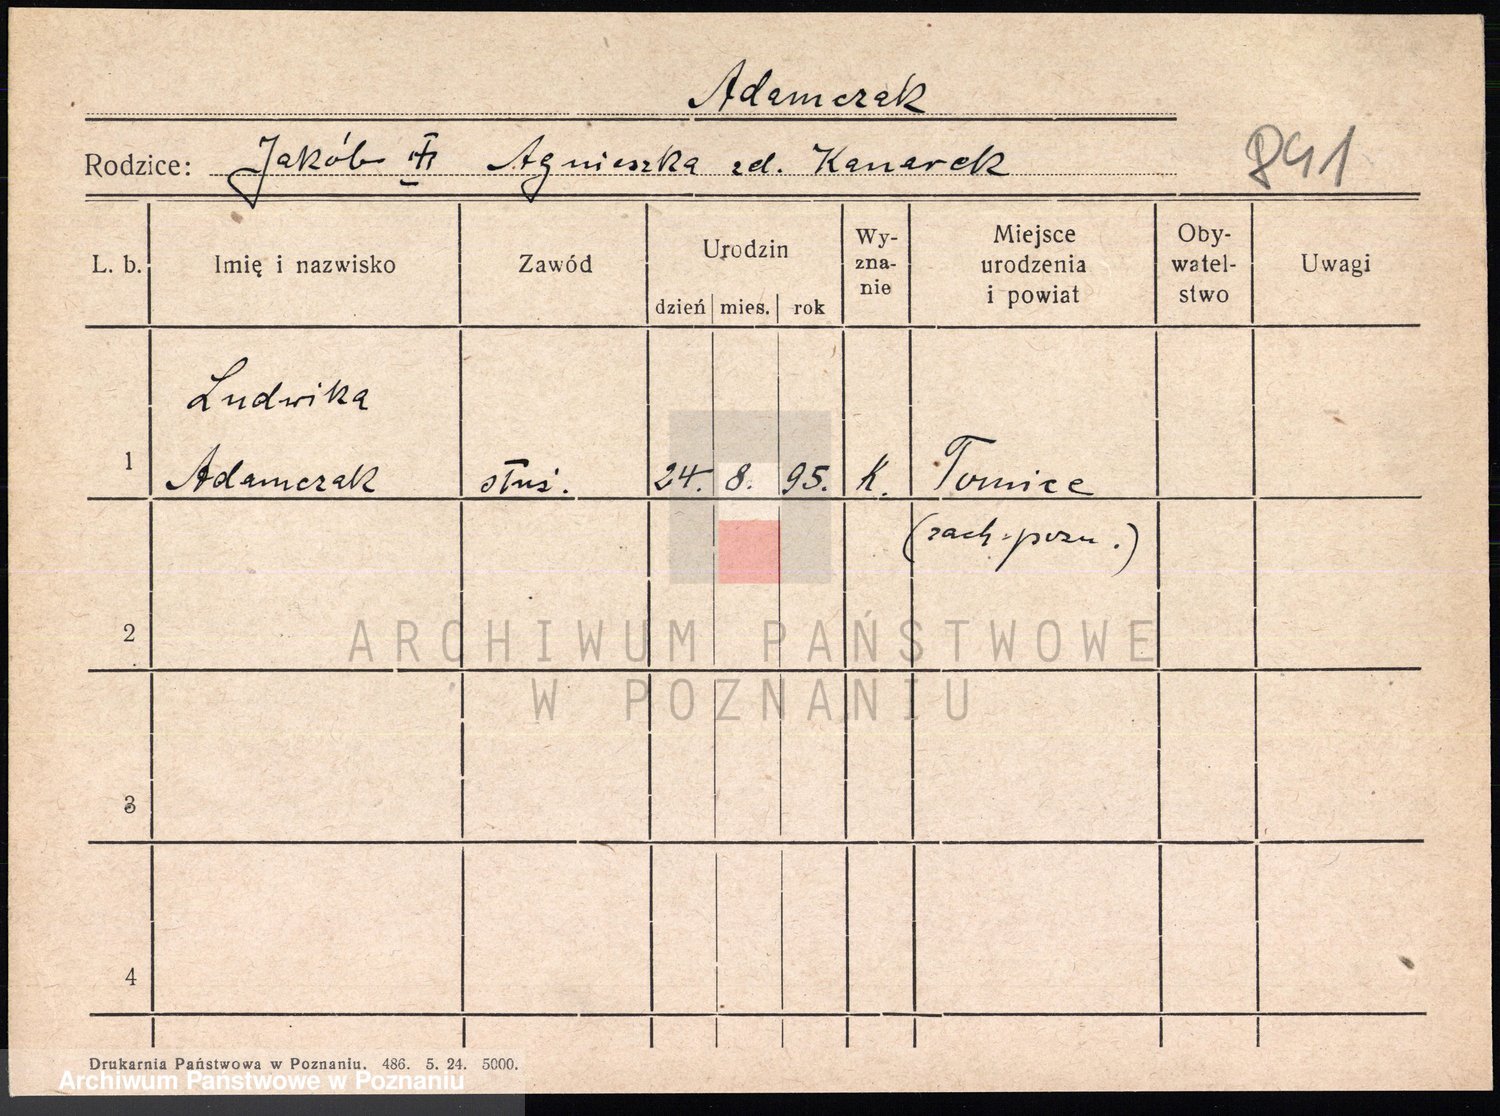 Adamczak
Rodzice: Jakób Agnieszka zd. Kanarek
891
L. b. Imię i nazwisko Zawód Urodzin dzień mies. rok Wy-zna-nie Miejsce urodzenia i powiat Oby-watel-stwo Uwagi
Ludwika
1 Adamczak służ. 24. 8. 95. K. Tomice
(zach.-pozn.)
2
3
4
ARCHIWUM PAŃSTWOWE
W POZNANIU
Drukarnia Państwowa w Poznaniu. 486. 5. 24. 5000.
Archiwum Państwowe w Poznaniu